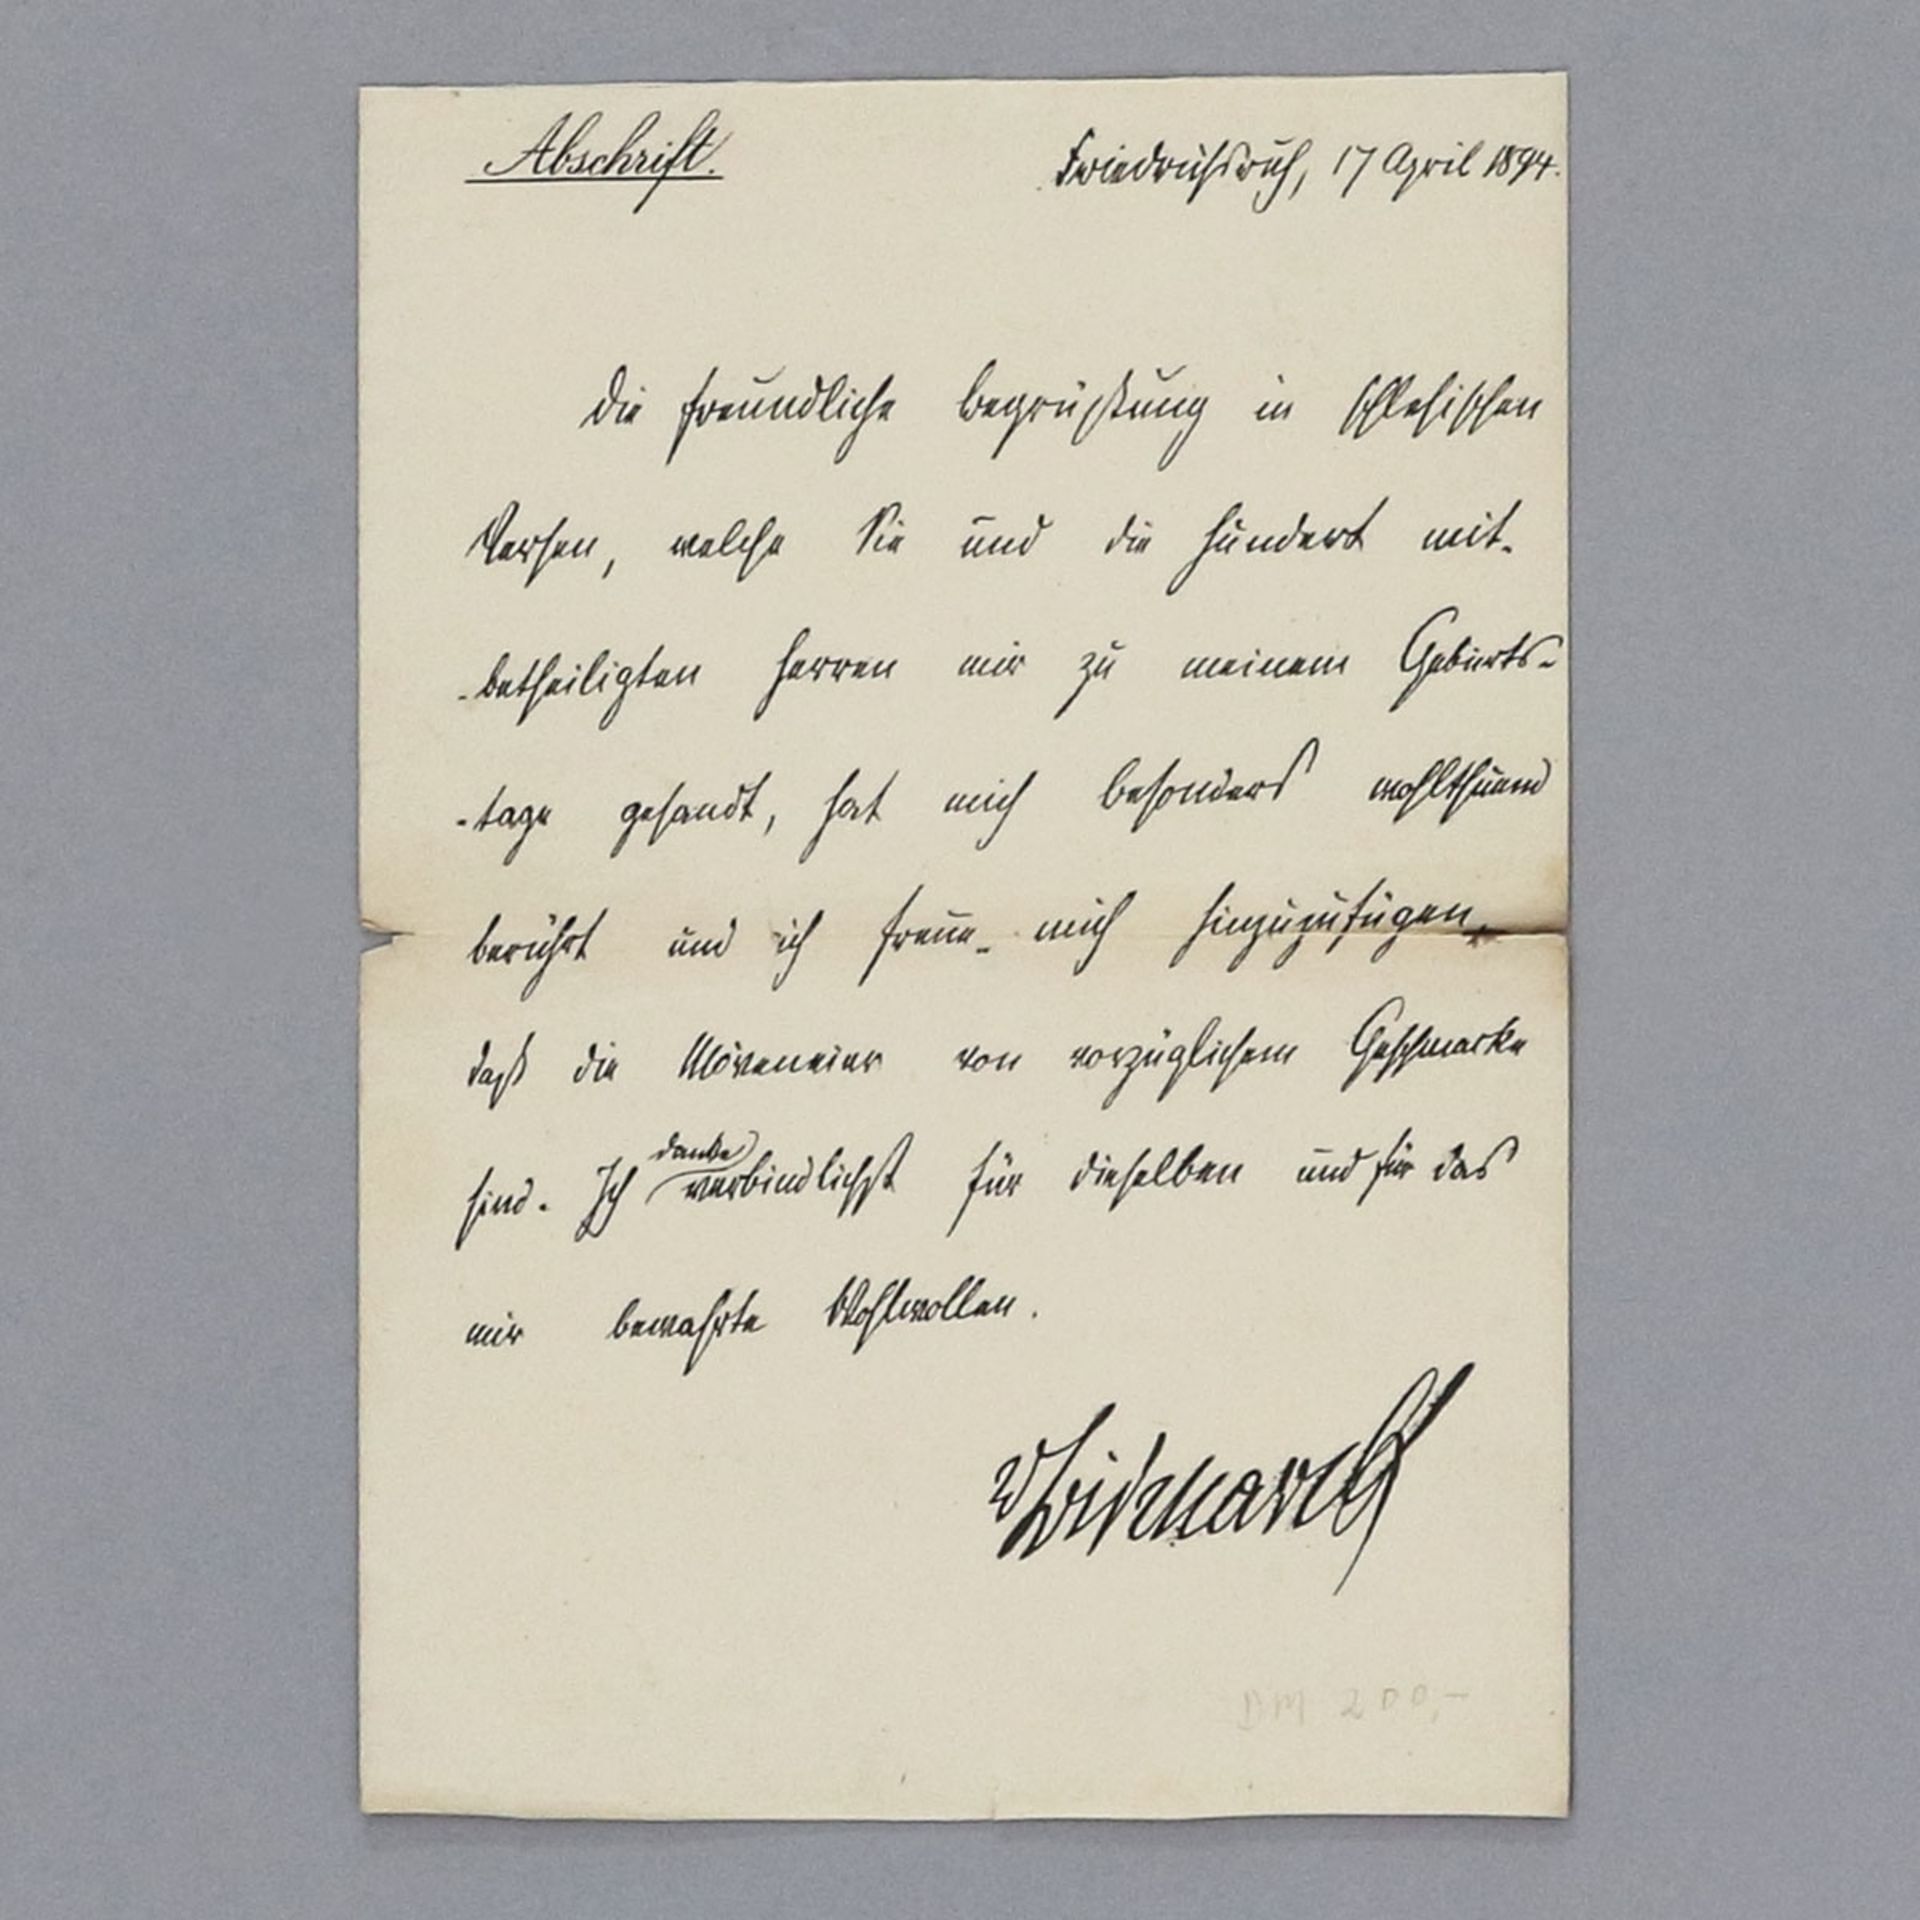 Abschrift.
Friedrichsruh, 17 April 1894.
Die freundliche Begrüßung in schlesischen
Versen, welche Sie und die hundert mit-
-betheiligten Herren mir zu meinem Geburts-
-tage gesandt, hat mich besonders wohlthuend
berührt und ich freue mich hinzuzufügen,
daß die Möveneier von vorzüglichem Geschmacke
sind. Ich danke verbindlichst für dieselben und für das
mir bewahrte Wohlwollen.
v Bismarck
DM 200,-